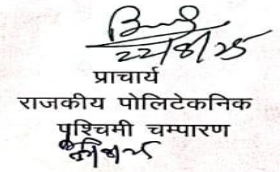 22/8/25
प्राचार्य
राजकीय पोलिटेकनिक
पश्चिमी चम्पारण